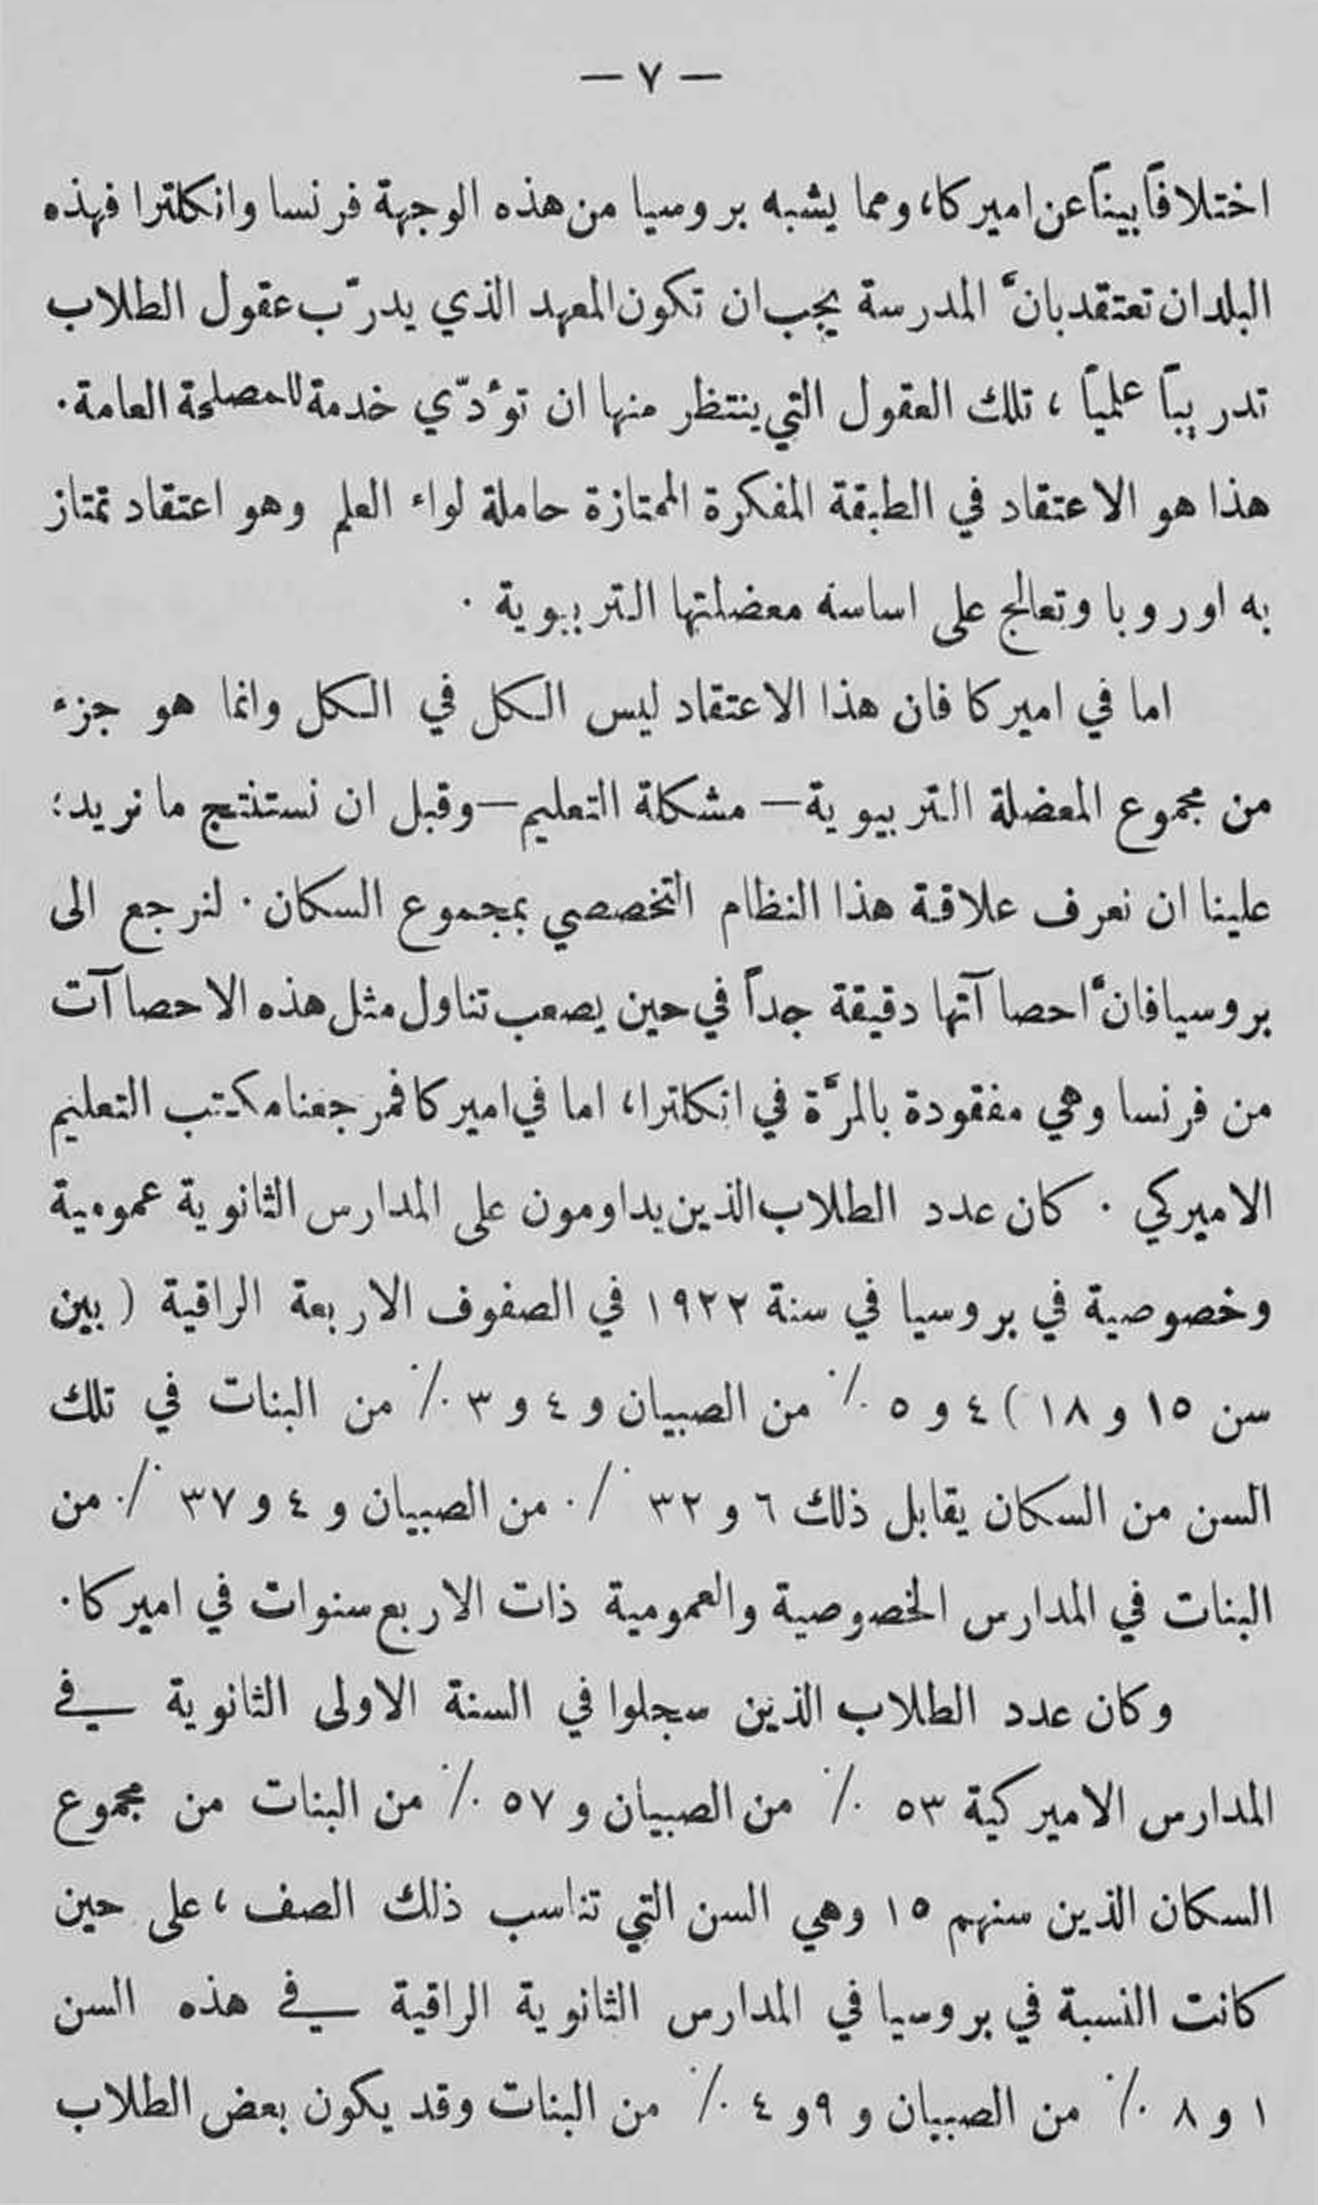 — ٧ —
اختلافاً بيناً عن اميركا، ومما يشبه بروسيا من هذه الوجهة فرنسا وانكلترا فهذه
البلدان تعتقد بانَّ المدرسة يجب ان تكون المعهد الذي يدرّب عقول الطلاب
تدريباً علمياً ، تلك العقول التي ينتظر منها ان توُدّي خدمة للمصلحة العامة.
هذا هو الاعتقاد في الطبقة المفكرة الممتازة حاملة لواء العلم وهو اعتقاد تمتاز
به اوروبا وتعالج على اساسه معضلتها التربيوية .
اما في اميركا فان هذا الاعتقاد ليس الكل في الكل وانما هو جزء
من مجموع المعضلة التربيوية — مشكلة التعليم — وقبل ان نستنتج ما نريد؛
علينا ان نعرف علاقة هذا النظام التخصصي بمجموع السكان . لنرجع الى
بروسيا فانَّ احصاآتها دقيقة جداً في حين يصعب تناول مثل هذه الاحصاآت
من فرنسا وهي مفقودة بالمرَّة في انكلترا، اما في اميركا فمرجعنا مكتب التعليم
الاميركي . كان عدد الطلاب الذين يداومون على المدارس الثانوية عمومية
وخصوصية في بروسيا في سنة ١٩٢٢ في الصفوف الاربعة الراقية ( بين
سن ١٥ و ١٨ ) ٤ و ٥ ٪ من الصبيان و ٤ و ٣ ٪ من البنات في تلك
السن من السكان يقابل ذلك ٦ و ٣٢ ٪ من الصبيان و ٤ و ٣٧ ٪ من
البنات في المدارس الخصوصية والعمومية ذات الاربع سنوات في اميركا.
وكان عدد الطلاب الذين سجلوا في السنة الاولى الثانوية في
المدارس الاميركية ٥٣ ٪ من الصبيان و ٥٧ ٪ من البنات من مجموع
السكان الذين سنهم ١٥ وهي السن التي تناسب ذلك الصف ، على حين
كانت النسبة في بروسيا في المدارس الثانوية الراقية في هذه السن
١ و ٨ ٪ من الصبيان و ٩ و ٤ ٪ من البنات وقد يكون بعض الطلاب